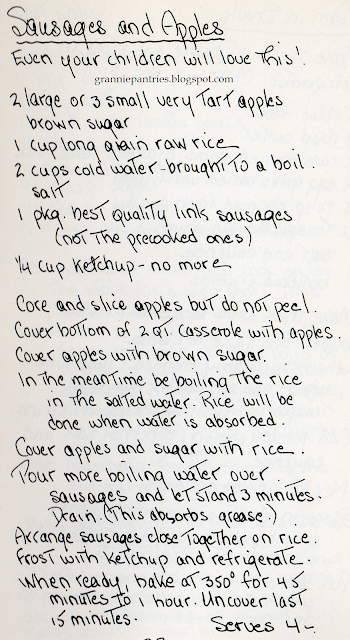 Sausages and Apples
Even your children will love this!
granniepantries.blogspot.com
2 large or 3 small very tart apples
brown sugar
1 cup long grain raw rice
2 cups cold water - brought to a boil.
salt
1 pkg. best quality link sausages
(not the precooked ones)
1/4 cup ketchup - no more
Core and slice apples but do not peel.
Cover bottom of 2 qt. casserole with apples.
Cover apples with brown sugar.
In the meantime be boiling the rice
in the salted water. Rice will be
done when water is absorbed.
Cover apples and sugar with rice.
Pour more boiling water over
sausages and let stand 3 minutes.
Drain. (This absorbs grease.)
Arrange sausages close together on rice.
Frost with ketchup and refrigerate.
When ready, bake at 350° for 45
minutes to 1 hour. Uncover last
15 minutes.
Serves 4-